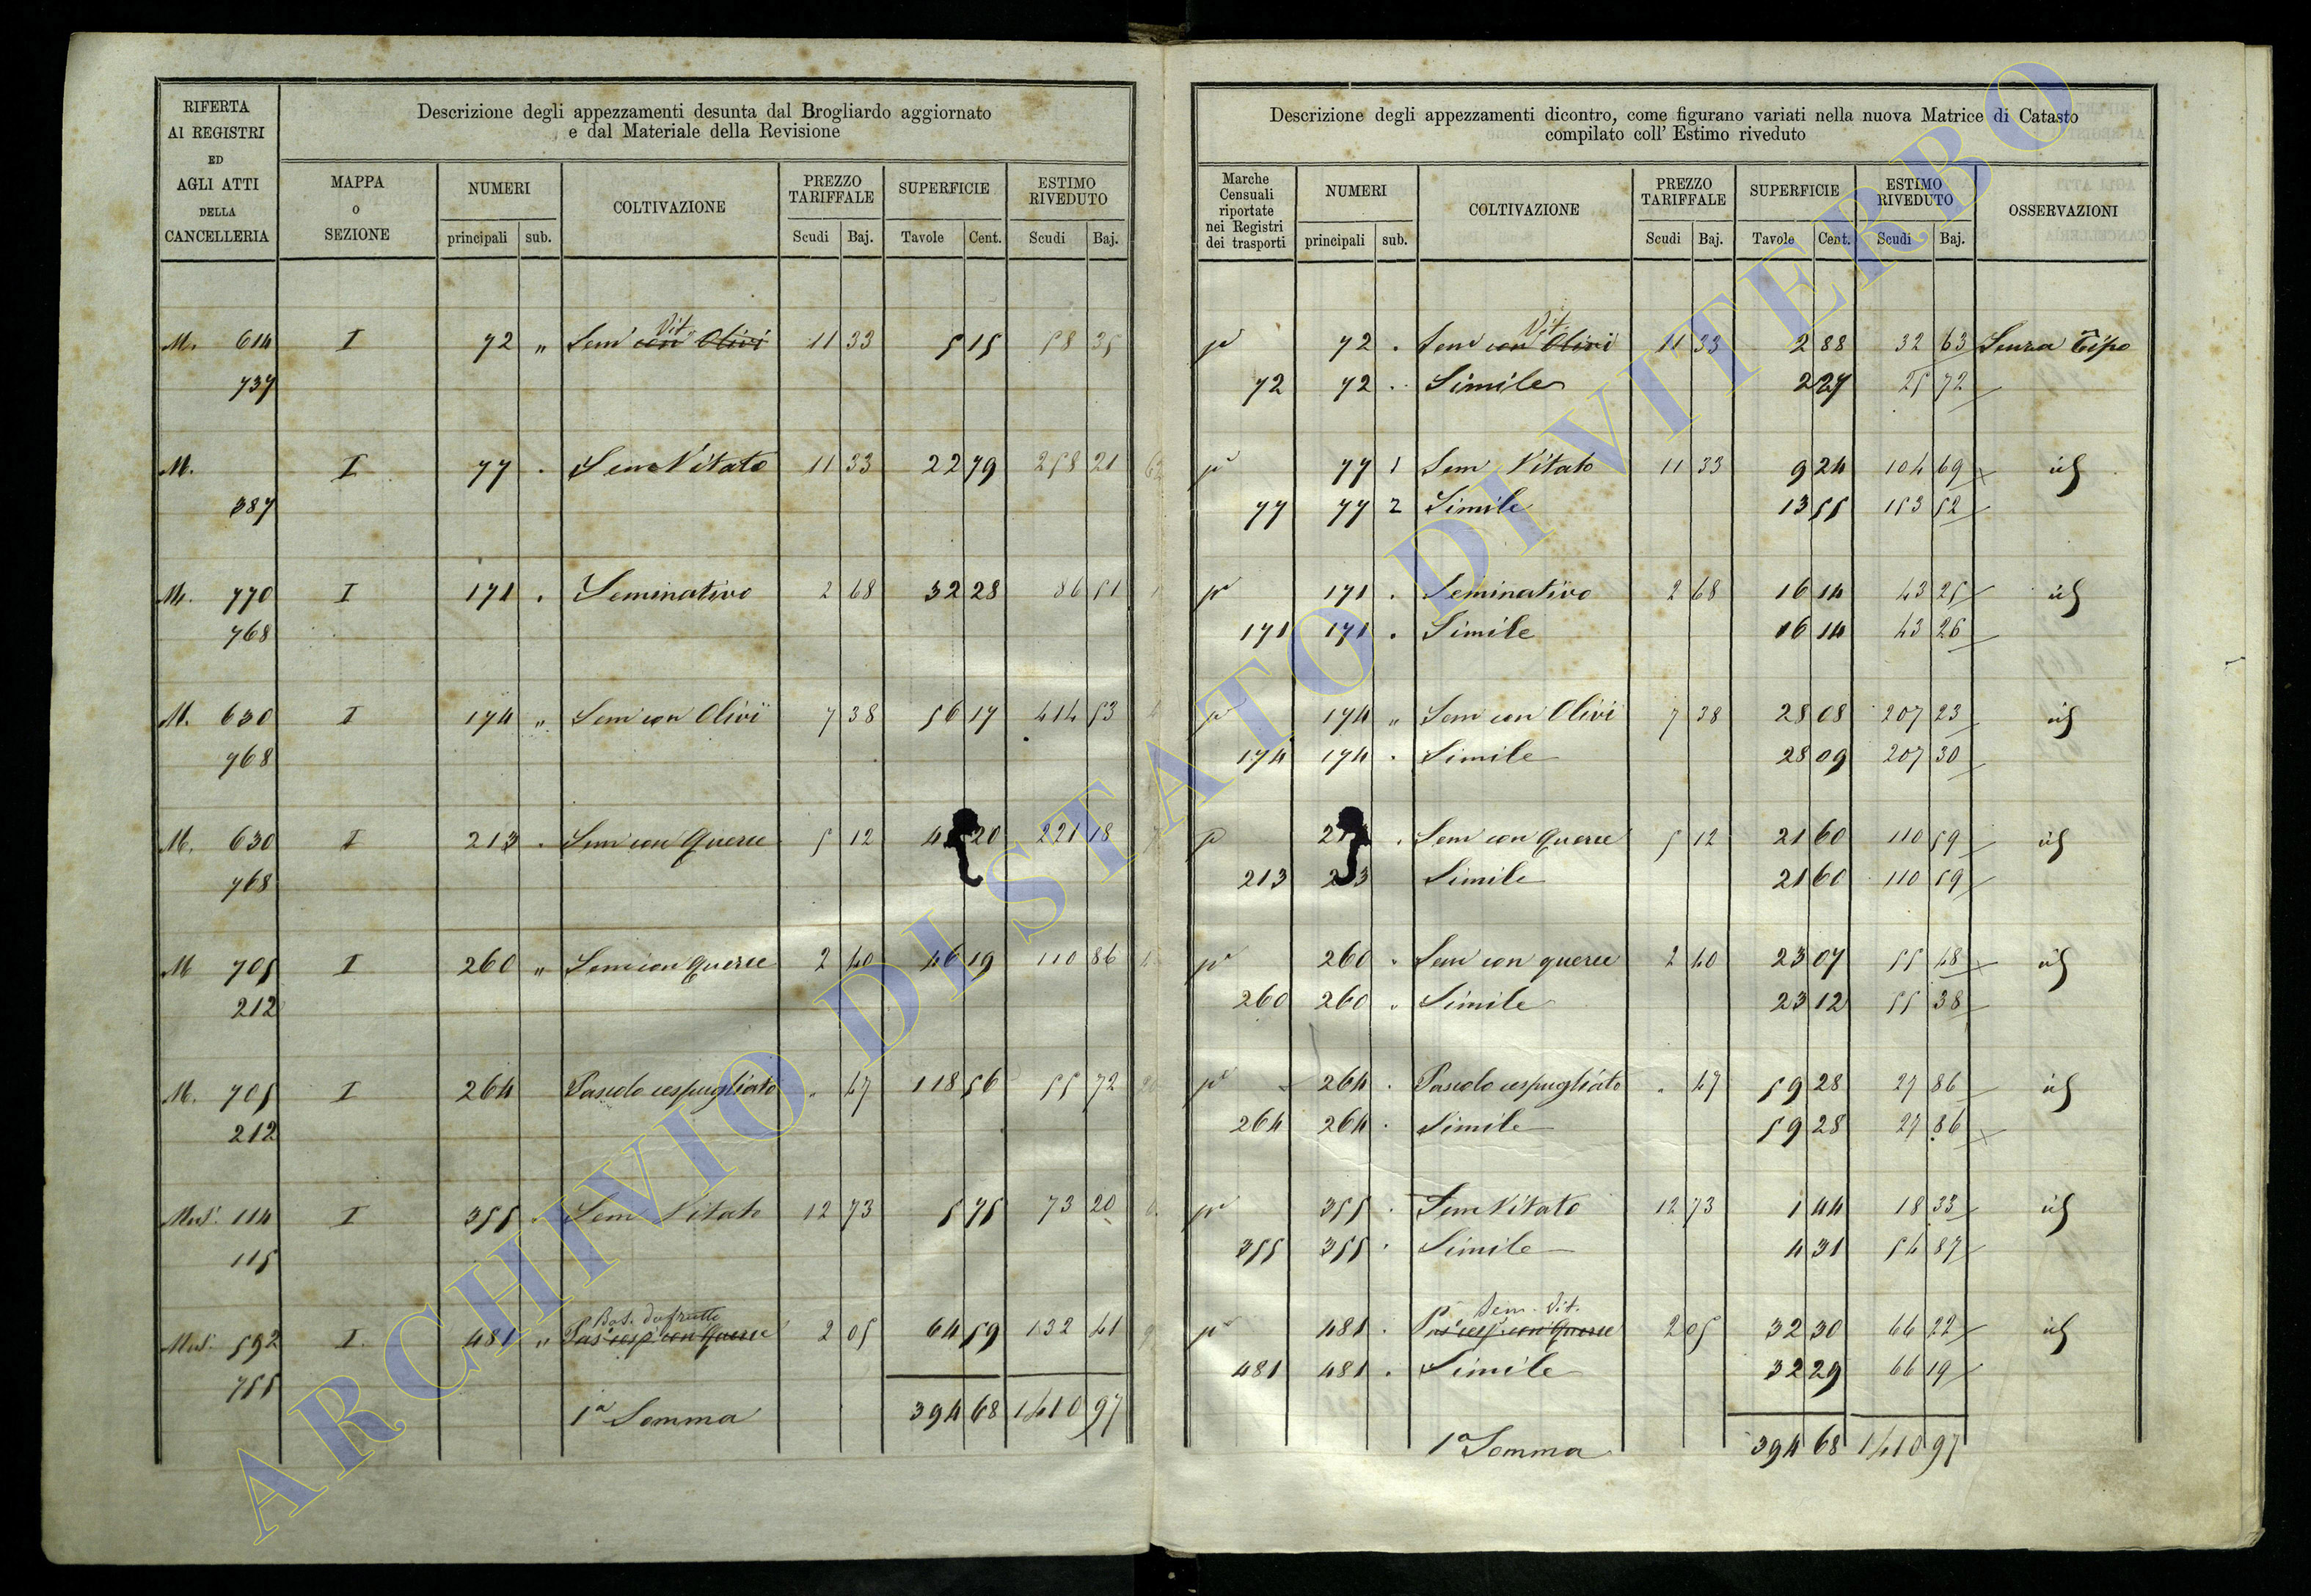 RIFERTA
AI REGISTRI
ED
AGLI ATTI
DELLA
CANCELLERIA
Descrizione degli appezzamenti desunta dal Brogliardo aggiornato
e dal Materiale della Revisione
MAPPA
O
SEZIONE
NUMERI
principali sub.
COLTIVAZIONE
PREZZO
TARIFFALE
Scudi Baj.
SUPERFICIE
Tavole Cent.
ESTIMO
RIVEDUTO
Scudi Baj.
Vit.
M. 614 I 72 " Sem con Olivi 11 33 5 15 58 35
737
M. I 77 . Sem Vitato 11 33 22 79 258 21
387
M. 770 I 171 . Seminativo 2 68 32 28 86 51
768
M. 630 I 174 " Sem con Olivi 7 38 56 17 414 53
768
M. 630 I 213 . Sem con Querce 5 12 20 221 18
768
M 705 I 260 " Sem con querce 2 40 46 19 110 86
212
M. 705 I 264 Pascolo cespugliato " 47 118 56 55 72
212
114 I 355 Sem Vitato 12 73 5 75 73 20
115
Bos. da frutto
592 I. 481 " Pas cesp con Querce 2 05 64 59 132 41
755
1a Somma 394 68 1410 97
Descrizione degli appezzamenti dicontro, come figurano variati nella nuova Matrice di Catasto
compilato coll' Estimo riveduto
Marche
Censuali
riportate
nei Registri
dei trasporti
NUMERI
principali sub.
COLTIVAZIONE
PREZZO
TARIFFALE
Scudi Baj.
SUPERFICIE
Tavole Cent.
ESTIMO
RIVEDUTO
Scudi Baj.
OSSERVAZIONI
Vit.
72 . Sem con Olivi 11 33 2 88 32 63 Senza Tipo
72 72 . Simile 2 27 25 72
77 1 Sem Vitato 11 33 9 24 104 69
77 77 2 Simile 13 55 153 52
171 . Seminativo 2 68 16 14 43 25
171 171 . Simile 16 14 43 26
174 " Sem con Olivi 7 38 28 08 207 23
174 174 . Simile 28 09 207 30
. Sem con Querce 5 12 21 60 110 59
213 Simile 21 60 110 59
260 " Sem con querce 2 40 23 07 55 48
260 260 " Simile 23 12 55 38
264 . Pascolo cespugliato " 47 59 28 27 86
264 264 . Simile 59 28 27 86
355 . Sem Vitato 12 73 1 44 18 33
355 355 . Simile 4 31 54 87
Sem. Vit.
481 . Pas cesp con Querce 2 05 32 30 66 22
481 481 . Simile 32 29 66 19
1a Somma 394 68 1410 97
ARCHIVIO DI STATO DI VITERBO